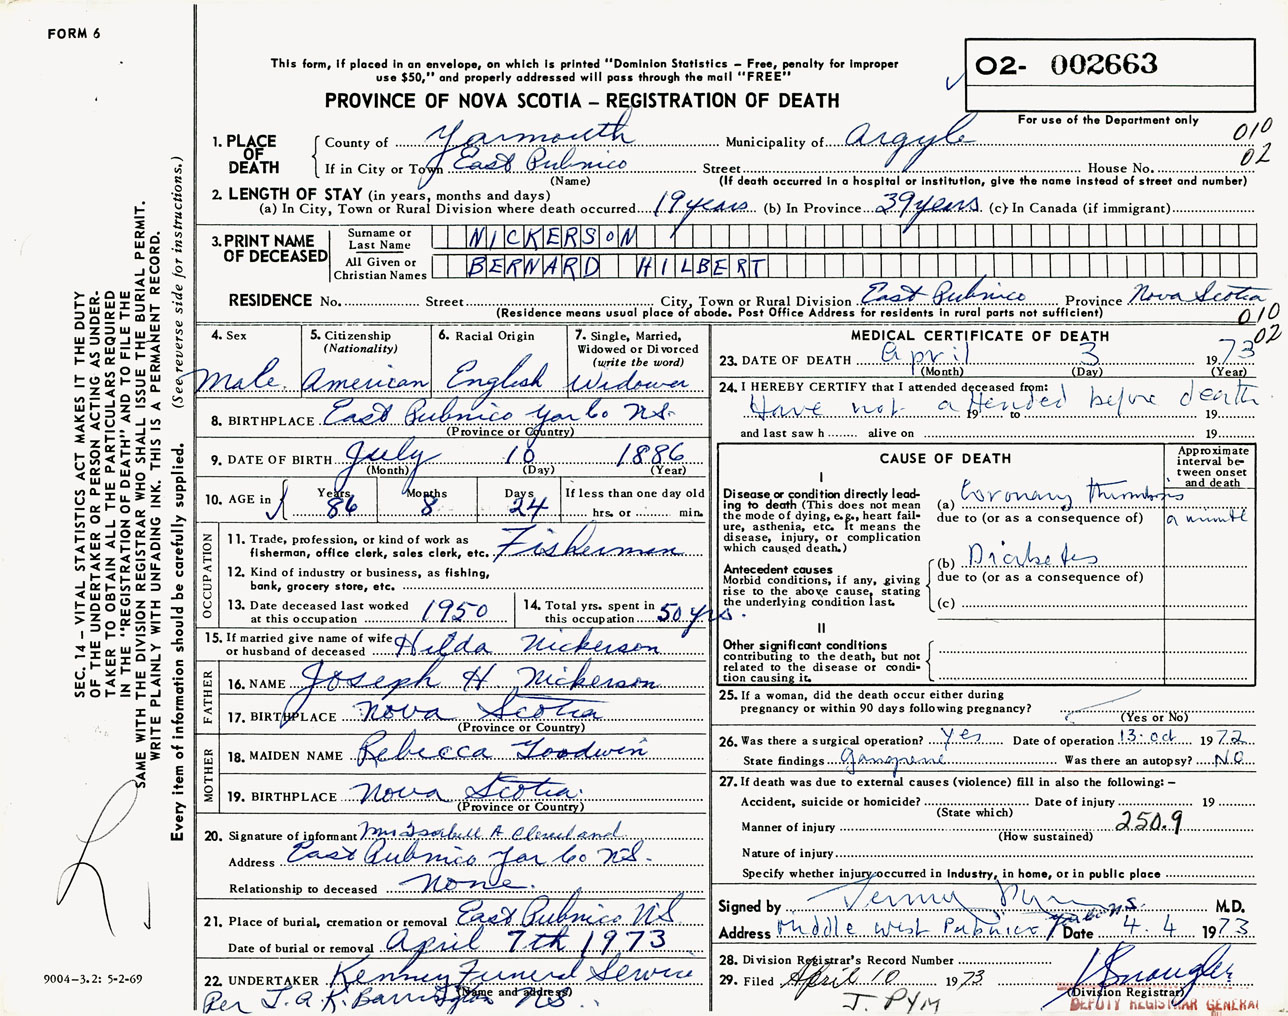 FORM 6
This form, if placed in an envelope, on which is printed "Dominion Statistics – Free, penalty for improper
use $50," and properly addressed will pass through the mail "FREE"
PROVINCE OF NOVA SCOTIA – REGISTRATION OF DEATH
O2- 002663
For use of the Department only
010
02
1. PLACE OF DEATH
County of Yarmouth Municipality of Argyle
If in City or Town East Pubnico Street House No.
(Name) (If death occurred in a hospital or institution, give the name instead of street and number)
2. LENGTH OF STAY (in years, months and days)
(a) In City, Town or Rural Division where death occurred 19 years (b) In Province 39 years (c) In Canada (if immigrant)
3. PRINT NAME OF DECEASED
Surname or Last Name NICKERSON
All Given or Christian Names BERNARD HILBERT
RESIDENCE No. Street City, Town or Rural Division East Pubnico Province Nova Scotia
(Residence means usual place of abode. Post Office Address for residents in rural parts not sufficient)
010
02
4. Sex Male
5. Citizenship (Nationality) American
6. Racial Origin English
7. Single, Married, Widowed or Divorced (write the word) Widower
8. BIRTHPLACE East Pubnico Yar Co NS.
(Province or Country)
9. DATE OF BIRTH July 10 1886
(Month) (Day) (Year)
10. AGE in Years 86 Months 8 Days 24 If less than one day old
hrs. or min.
OCCUPATION
11. Trade, profession, or kind of work as
fisherman, office clerk, sales clerk, etc. Fisherman
12. Kind of industry or business, as fishing,
bank, grocery store, etc.
13. Date deceased last worked at this occupation 1950
14. Total yrs. spent in this occupation 50 yrs.
15. If married give name of wife or husband of deceased Hilda Nickerson
FATHER
16. NAME Joseph H Nickerson
17. BIRTHPLACE Nova Scotia
(Province or Country)
MOTHER
18. MAIDEN NAME Rebecca Goodwin
19. BIRTHPLACE Nova Scotia.
(Province or Country)
20. Signature of informant Mrs Isabell A
Address East Pubnico Yar Co NS.
Relationship to deceased None.
21. Place of burial, cremation or removal East Pubnico NS
Date of burial or removal April 7th 1973
22. UNDERTAKER Kenney Funeral Service
(Name and address)
Per J.A.K. Barrington NS.
MEDICAL CERTIFICATE OF DEATH
23. DATE OF DEATH April 3 1973
(Month) (Day) (Year)
24. I HEREBY CERTIFY that I attended deceased from:
Have not attended before death
19 to 19
and last saw h alive on 19
CAUSE OF DEATH
Approximate interval between onset and death
I
Disease or condition directly leading to death (This does not
the mode of dying, e.g., heart failure, asthenia, etc. It means the
disease, injury, or complication
which caused death.)
(a) Coronary thrombosis
a minute
due to (or as a consequence of)
Antecedent causes
Morbid conditions, if any, giving
rise to the above cause, stating
the underlying condition last.
(b) Diabetes
due to (or as a consequence of)
(c)
II
Other significant conditions
contributing to the death, but not
related to the disease or condition causing it.
25. If a woman, did the death occur either during
pregnancy or within 90 days following pregnancy?
(Yes or No)
26. Was there a surgical operation? Yes Date of operation 13 oct 1972
State findings gangrene Was there an autopsy? NO
27. If death was due to external causes (violence) fill in also the following: –
Accident, suicide or homicide? Date of injury 19
(State which)
Manner of injury 250.9
(How sustained)
Nature of injury
Specify whether injury occurred in industry, in home, or in public place
Signed by M.D.
Address Middle West Pubnico Date 4. 4 1973
28. Division Registrar's Record Number
29. Filed April 10 1973
J. PYM
(Division Registrar)
DEPUTY REGISTRAR GENERAL
SEC. 14 – VITAL STATISTICS ACT MAKES IT THE DUTY
OF THE UNDERTAKER OR PERSON ACTING AS UNDER-
TAKER TO OBTAIN ALL THE PARTICULARS REQUIRED
IN THE "REGISTRATION OF DEATH" AND TO FILE THE
SAME WITH THE DIVISION REGISTRAR WHO SHALL ISSUE THE BURIAL PERMIT.
WRITE PLAINLY WITH UNFADING INK. THIS IS A PERMANENT RECORD.
Every item of information should be carefully supplied. (See reverse side for instructions.)
9004–3.2: 5-2-69